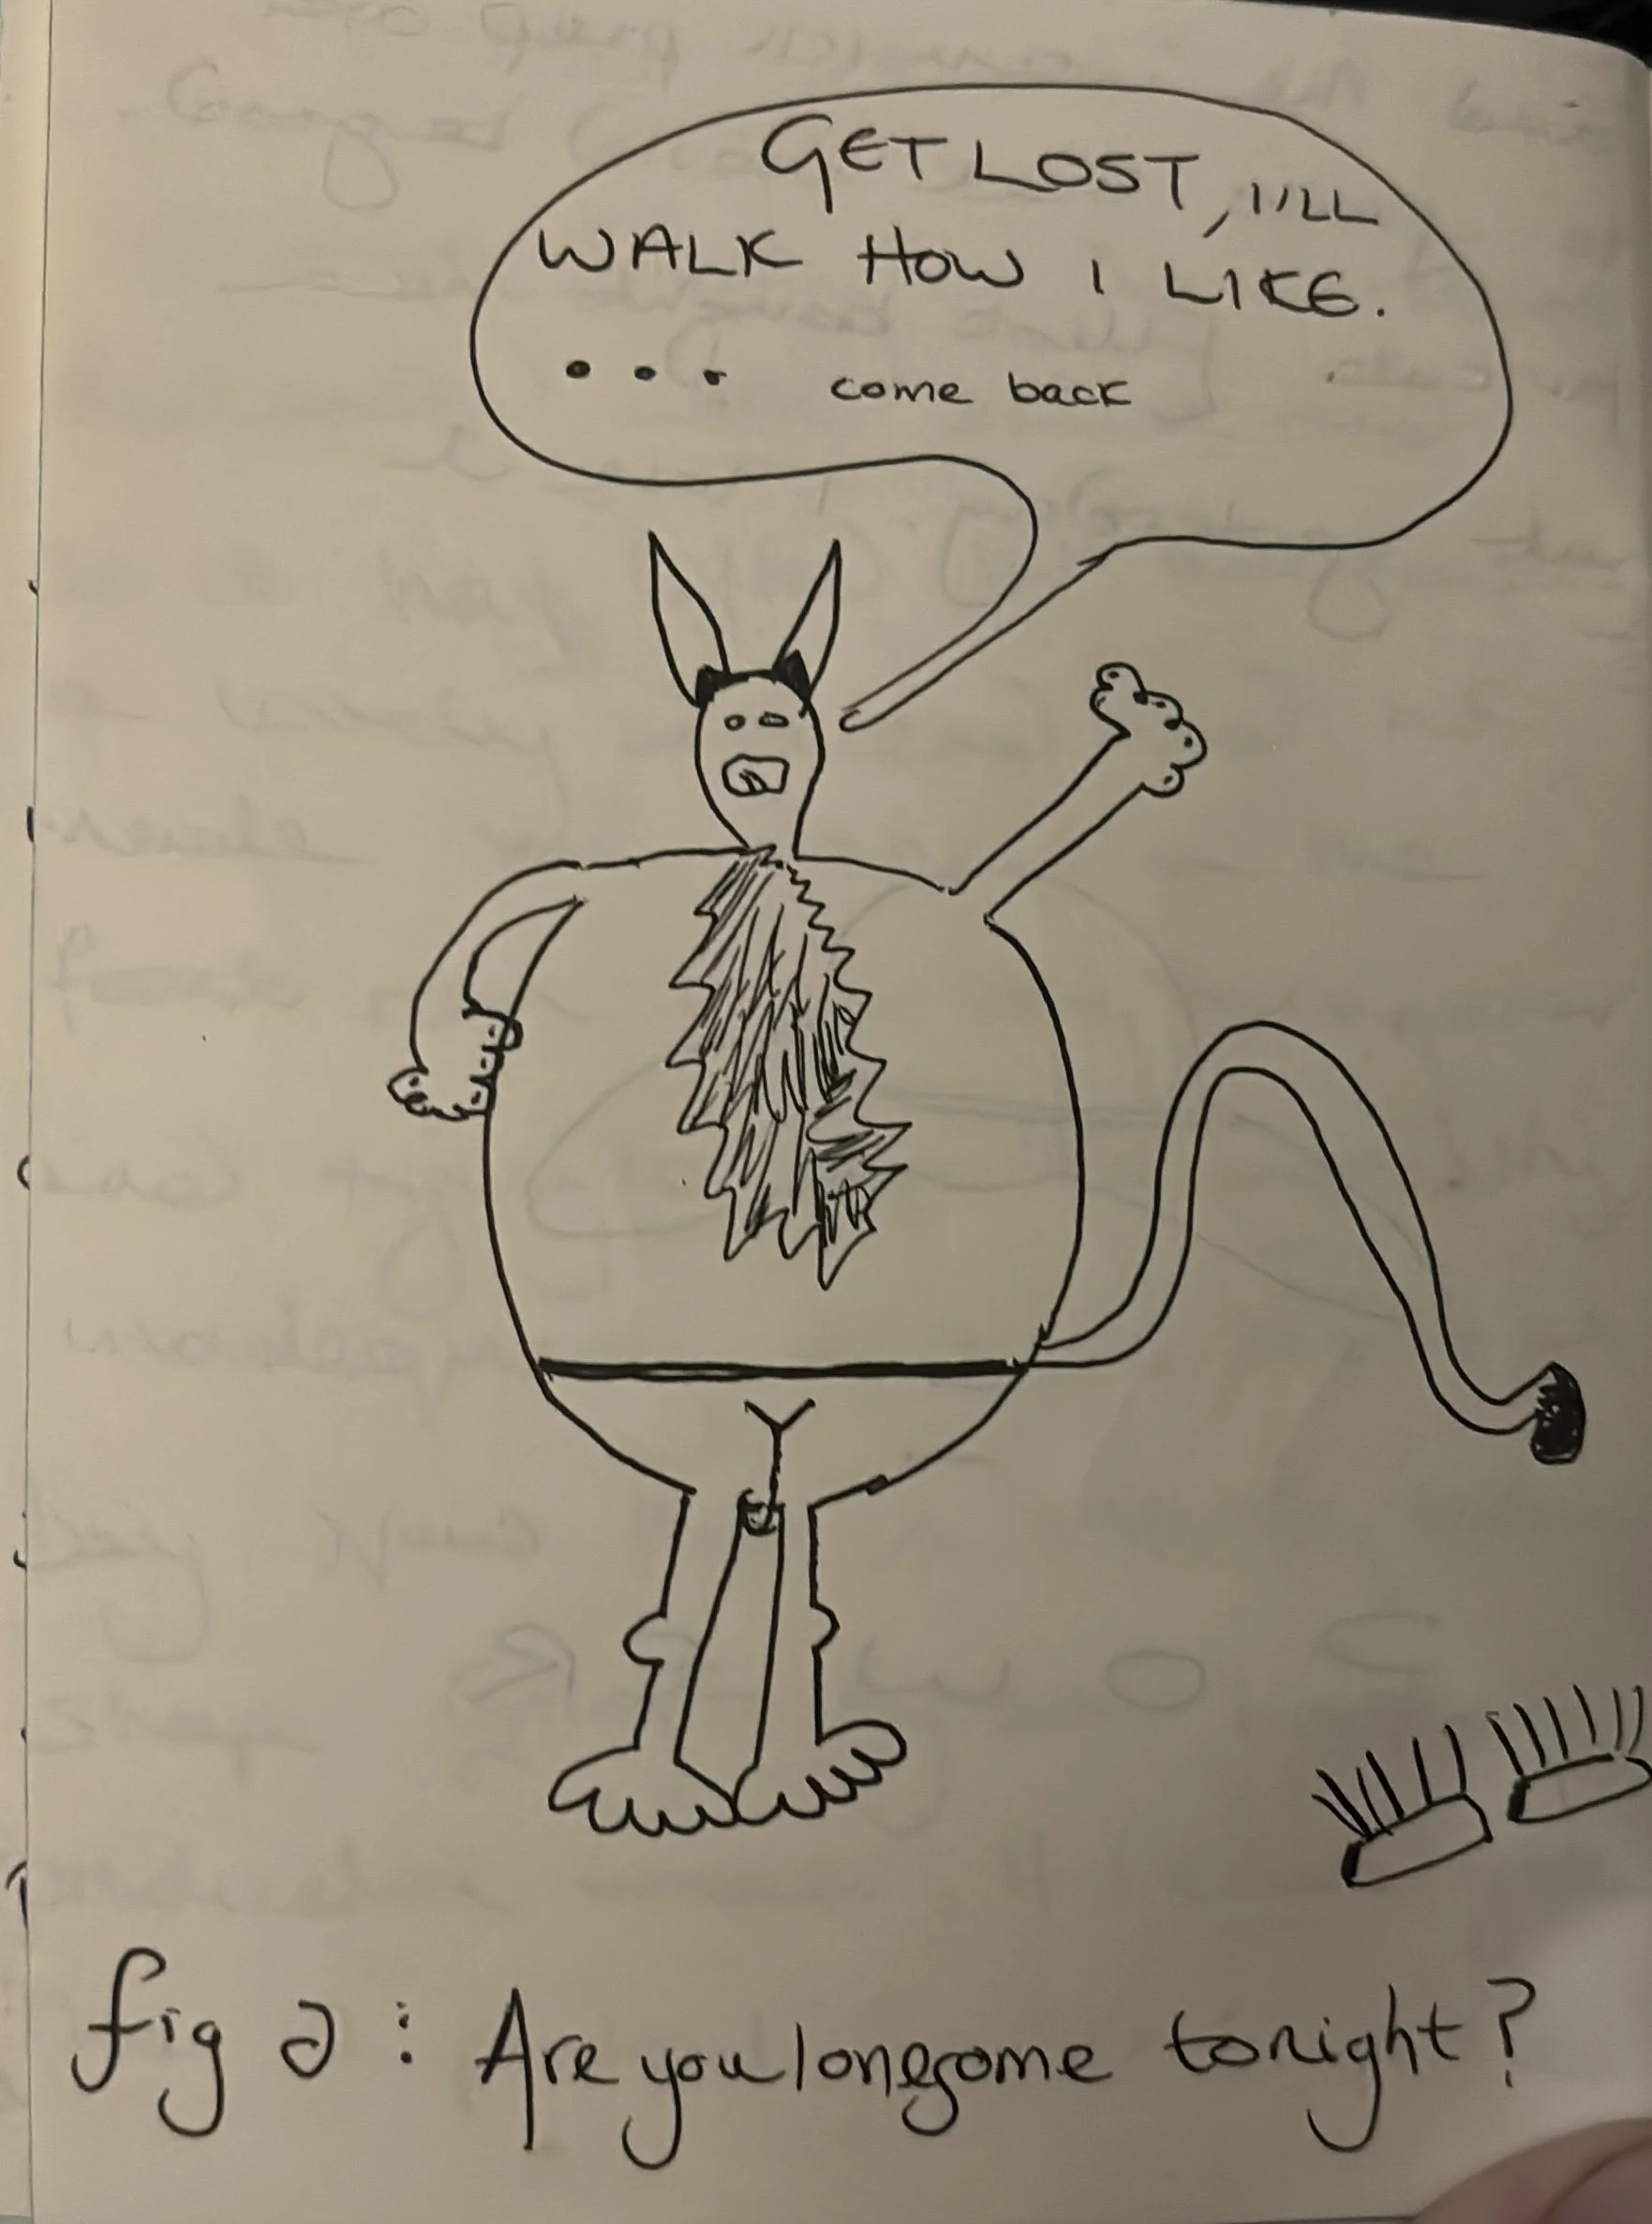 GET LOST, I'LL
WALK HOW I LIKE.
... come back
fig 2: Are you lonesome tonight?